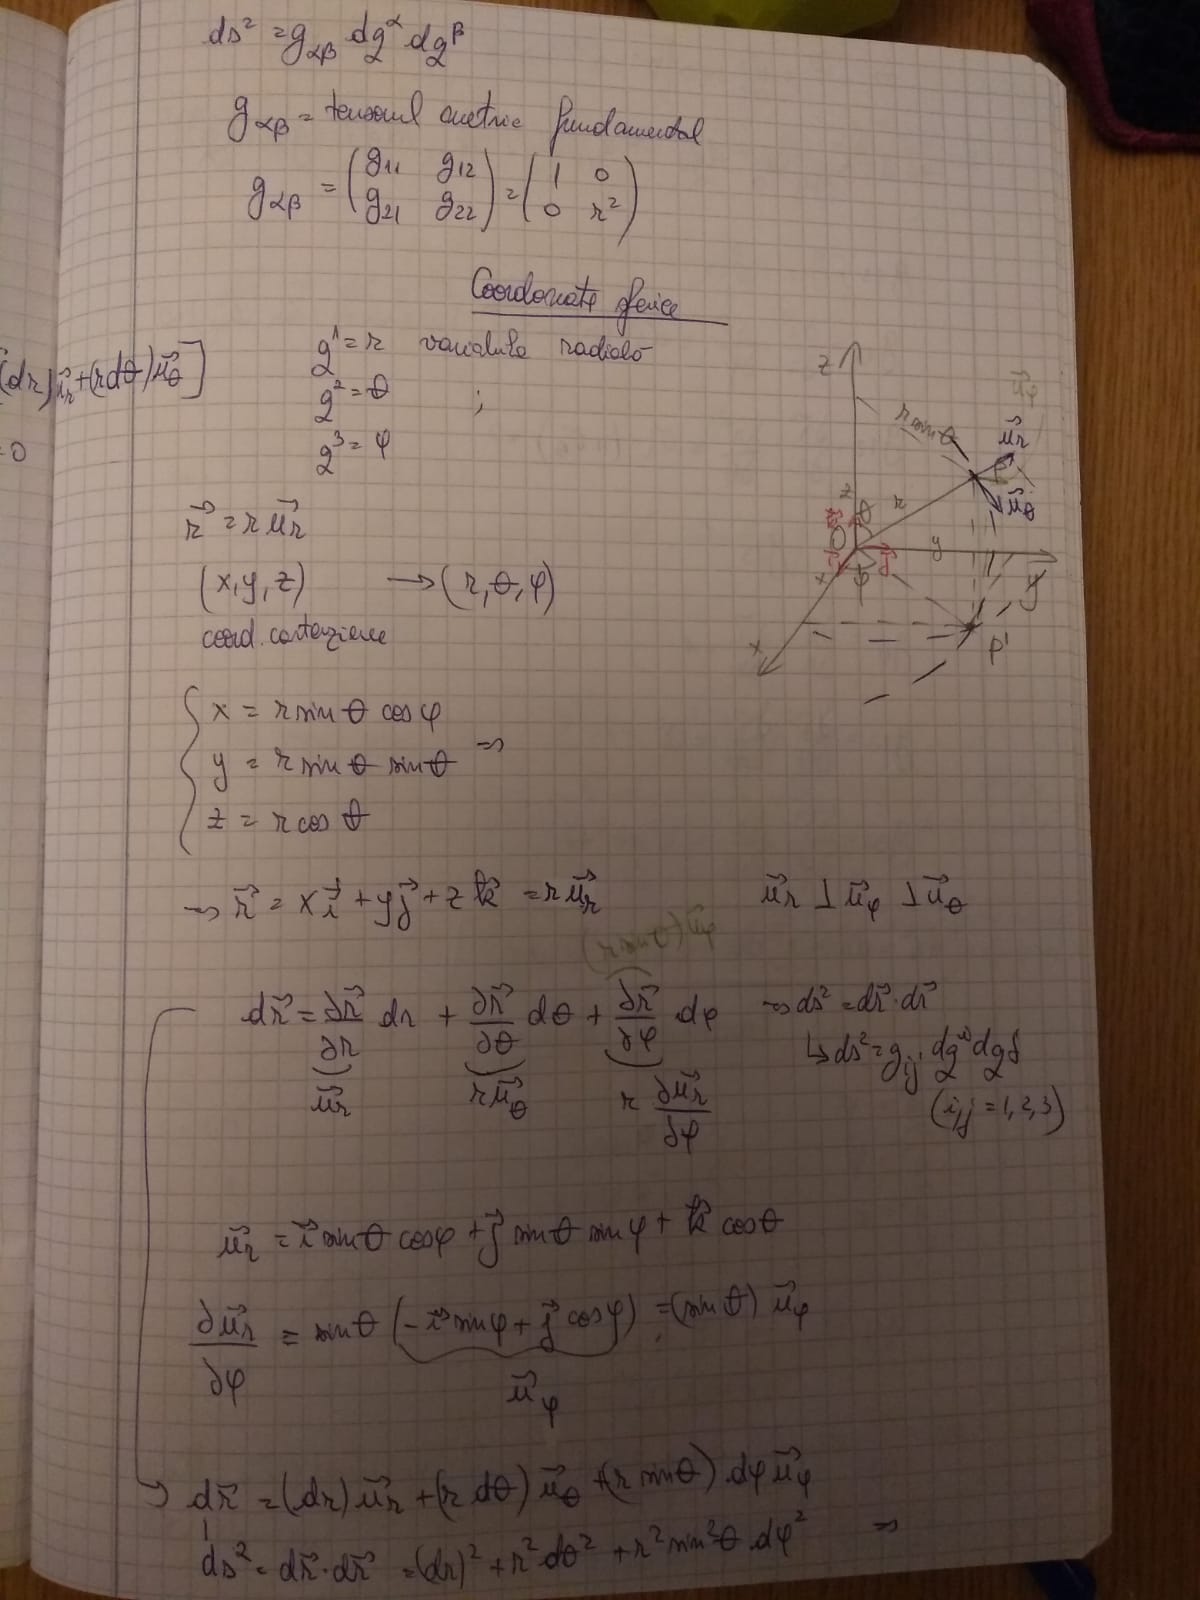 ds² = g_αβ dq^α dq^β
g_αβ = tensorul metric fundamental
g_αβ = (g₁₁ g₁₂ g₂₁ g₂₂) = (1 0 0 r²)
Coordonate sferice
(dr)u⃗_r + (r dθ)u⃗_θ]
= 0
q¹ = r variabila radială
q² = θ ;
q³ = φ
r⃗ = r u⃗_r
(x,y,z) → (r,θ,φ)
coord. carteziene
z
r sin θ
u⃗_φ
u⃗_r
P
u⃗_θ
z
θ
r
O
y
φ
x
y
x
P'
x = r sin θ cos φ
y = r sin θ sin θ ⇒
z = r cos θ
→ r⃗ = x i⃗ + y j⃗ + z k⃗ = r u⃗_r u⃗_r ⊥ u⃗_φ ⊥ u⃗_θ
(r sin θ) u⃗_φ
dr⃗ = ∂r⃗/∂r dr + ∂r⃗/∂θ dθ + ∂r⃗/∂φ dφ ⇒ ds² = dr⃗·dr⃗
↳ ds² = g_ij dq^i dq^j
u⃗_r r u⃗_θ r ∂u⃗_r/∂φ
(i,j = 1,2,3)
u⃗_r = i⃗ sin θ cos φ + j⃗ sin θ sin φ + k⃗ cos θ
∂u⃗_r/∂φ = sin θ (-i⃗ sin φ + j⃗ cos φ) = (sin θ) u⃗_φ
u⃗_φ
→ dr⃗ = (dr) u⃗_r + (r dθ) u⃗_θ + (r sin θ) dφ u⃗_φ
ds² = dr⃗·dr⃗ = (dr)² + r² dθ² + r² sin² θ dφ² ⇒